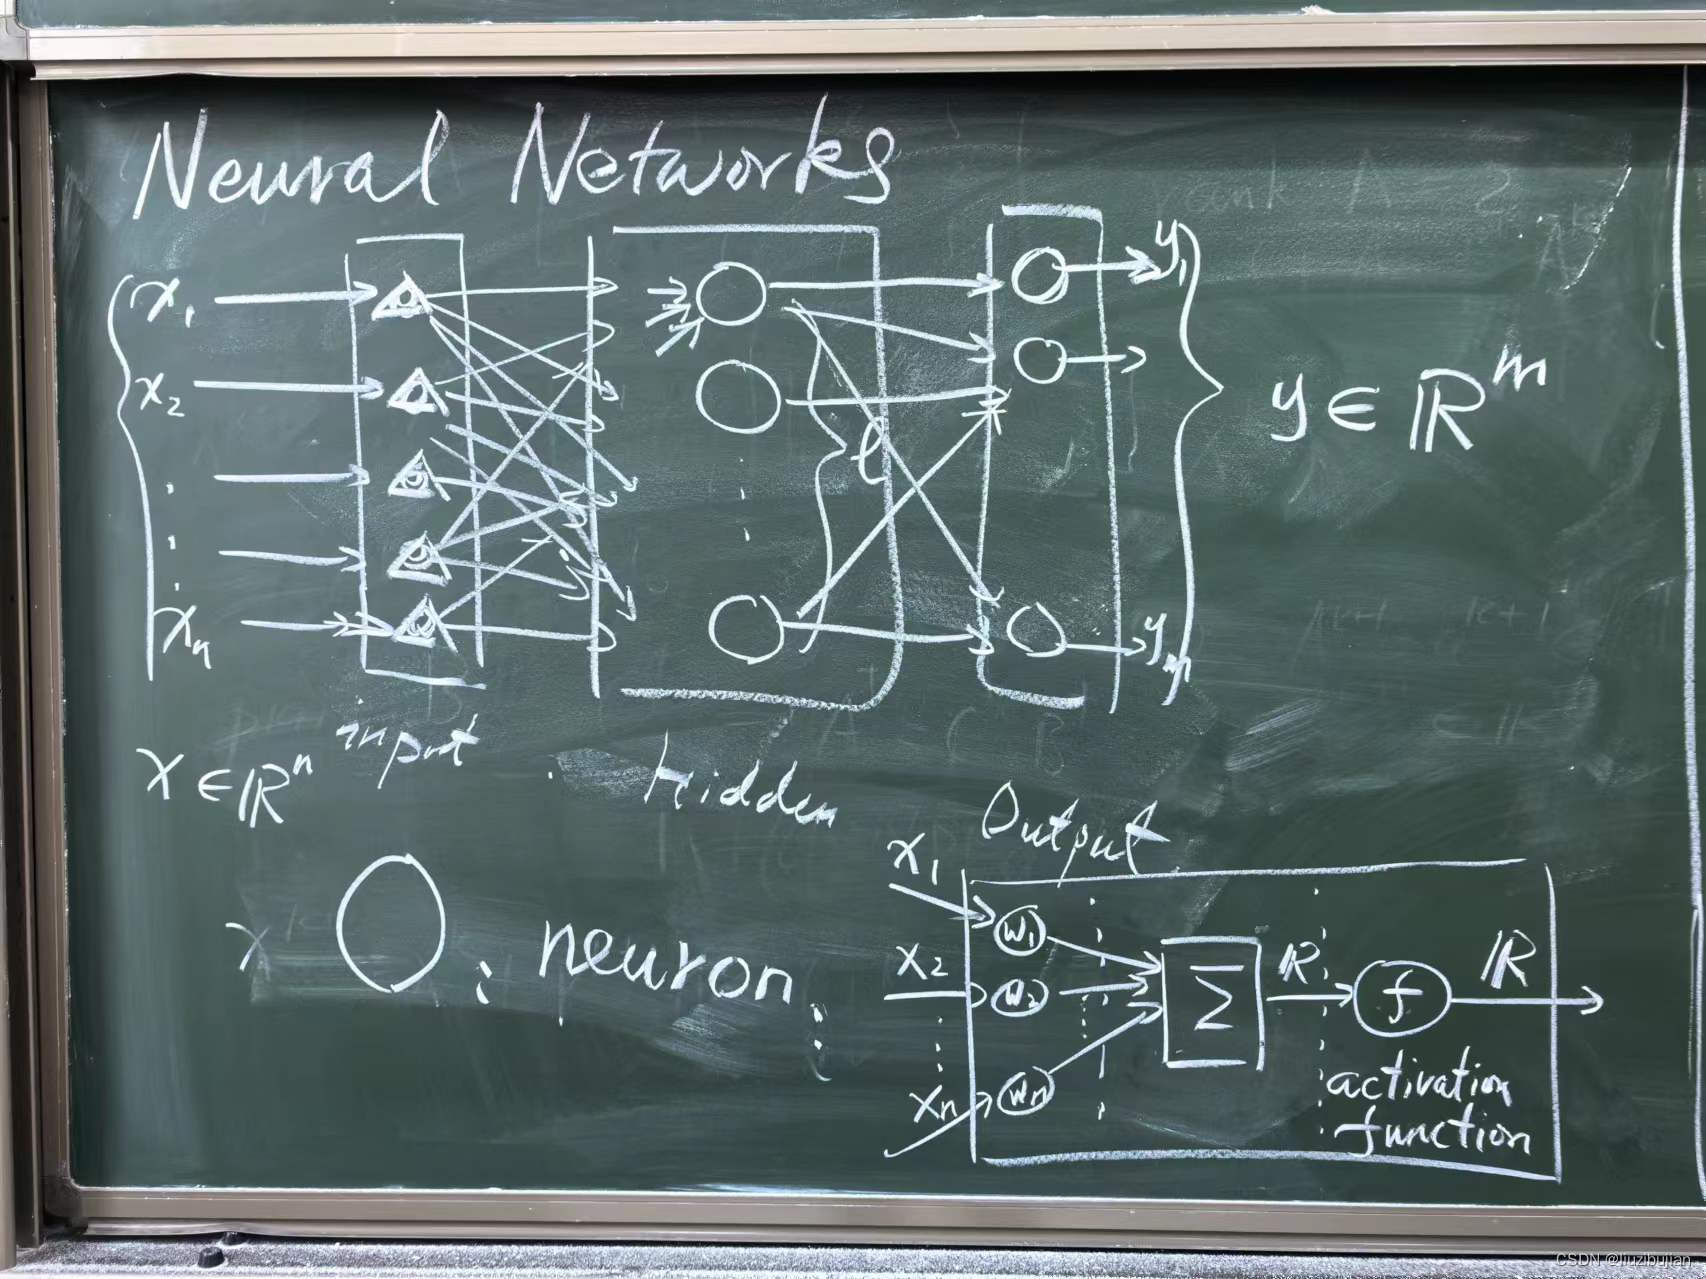 Neural Networks
x₁
x₂
xₙ
y₁
yₘ
ℓ
y ∈ ℝᵐ
input
x ∈ ℝⁿ
Hidden
Output
: neuron
x₁
x₂
xₙ
w₁
w₂
wₙ
Σ
ℝ
f
ℝ
activation
function
CSDN @liuzibujian